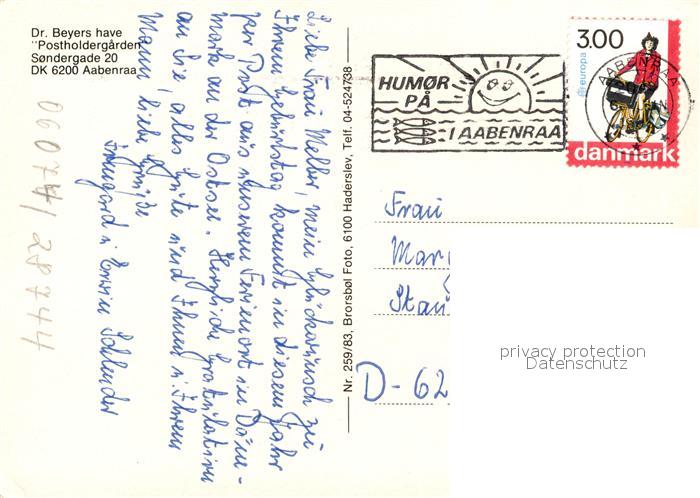 Dr. Beyers have
"Postholdergården
Søndergade 20
DK 6200 Aabenraa
Liebe Frau Melber, mein Glückwunsch zu
Ihrem Geburtstag kommt in diesem Jahr
per Post aus unserem Ferienort in Däne-
mark an der Ostsee. Herzliche Gratulation
an Sie alles Gute und Ihnen u. Ihrem
Mann, liebe Grüße
Irmgard u. Erwin
060744/28744
Nr. 259/83, Brorsbøl Foto, 6100 Haderslev, Telf. 04-524738
HUMØR
PÅ
I AABENRAA
3.00
europa
danmark
AABENRAA
Frau
Mar
Stau
D-62
privacy protection
Datenschutz